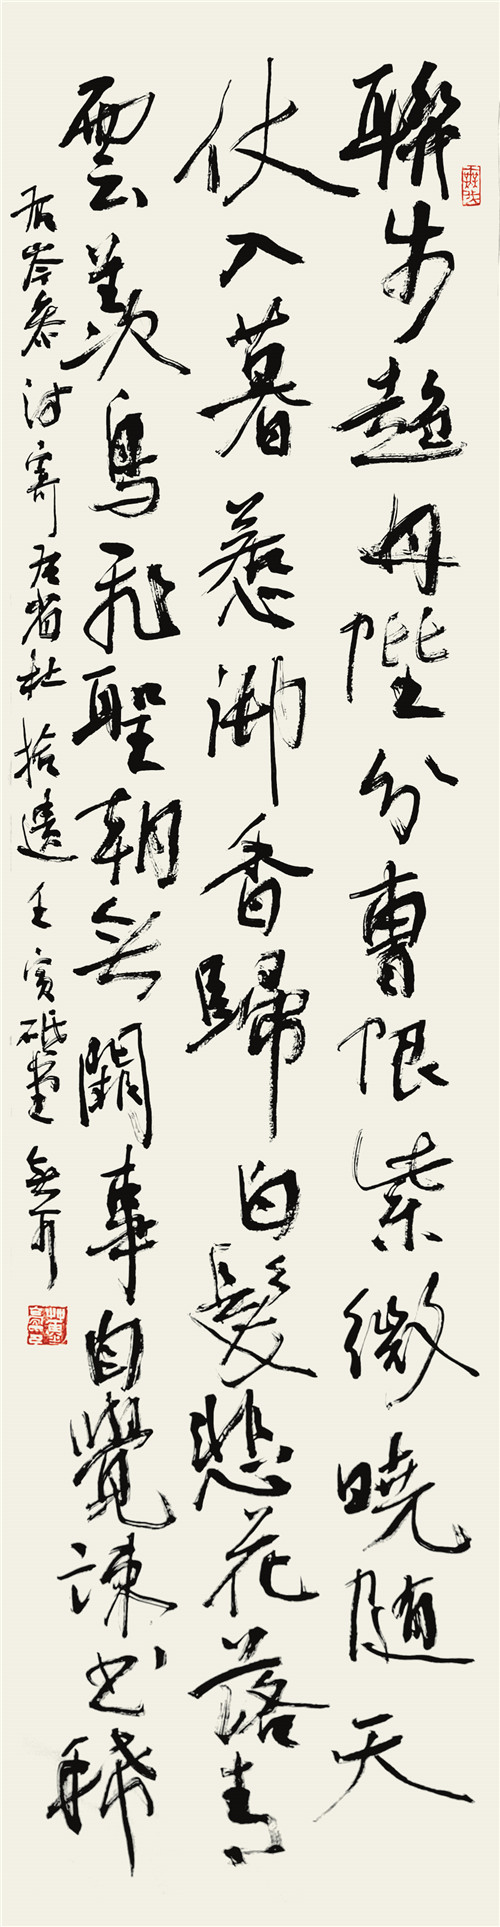 聯步趨丹陛分曹限紫微曉隨天
仗入暮惹御香歸白髮悲花落青
雲羨鳥飛聖朝無闕事自覺諫書稀
右岑參詩寄左省杜拾遺壬寅砥堂